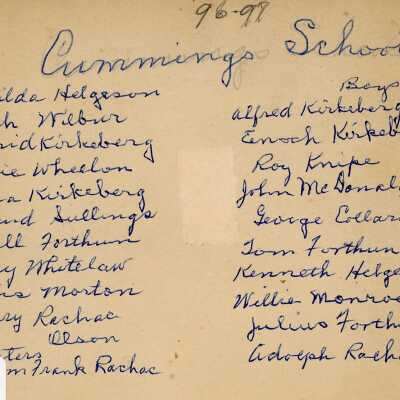 96-97
Cummings School
Boys
ilda Helgeson
h Wilbur
ridKirkeberg
ie Wheelon
a Kirkeberg
und Sullings
ll Forthun
y Whitelaw
is Morton
ry Rachac
Olson
sters
m Frank Rachac
Alfred Kirkeberg
Enoch Kirkeb
Roy Knipe
John McDonal
George Collar
Tom Forthun
Kenneth Helge
Willie Monroe
Julius Forthu
Adolph Racha